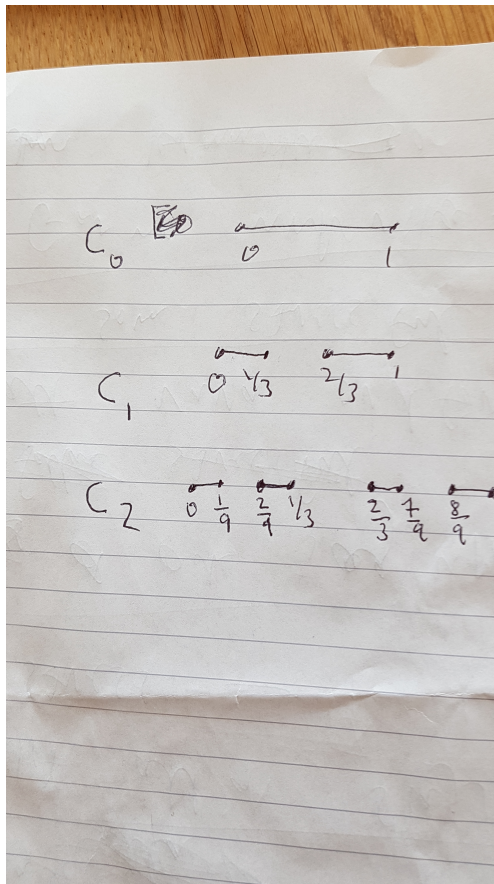 C₀ 0 1
C₁ 0 1/3 2/3 1
C₂ 0 1/9 2/9 1/3 2/3 7/9 8/9